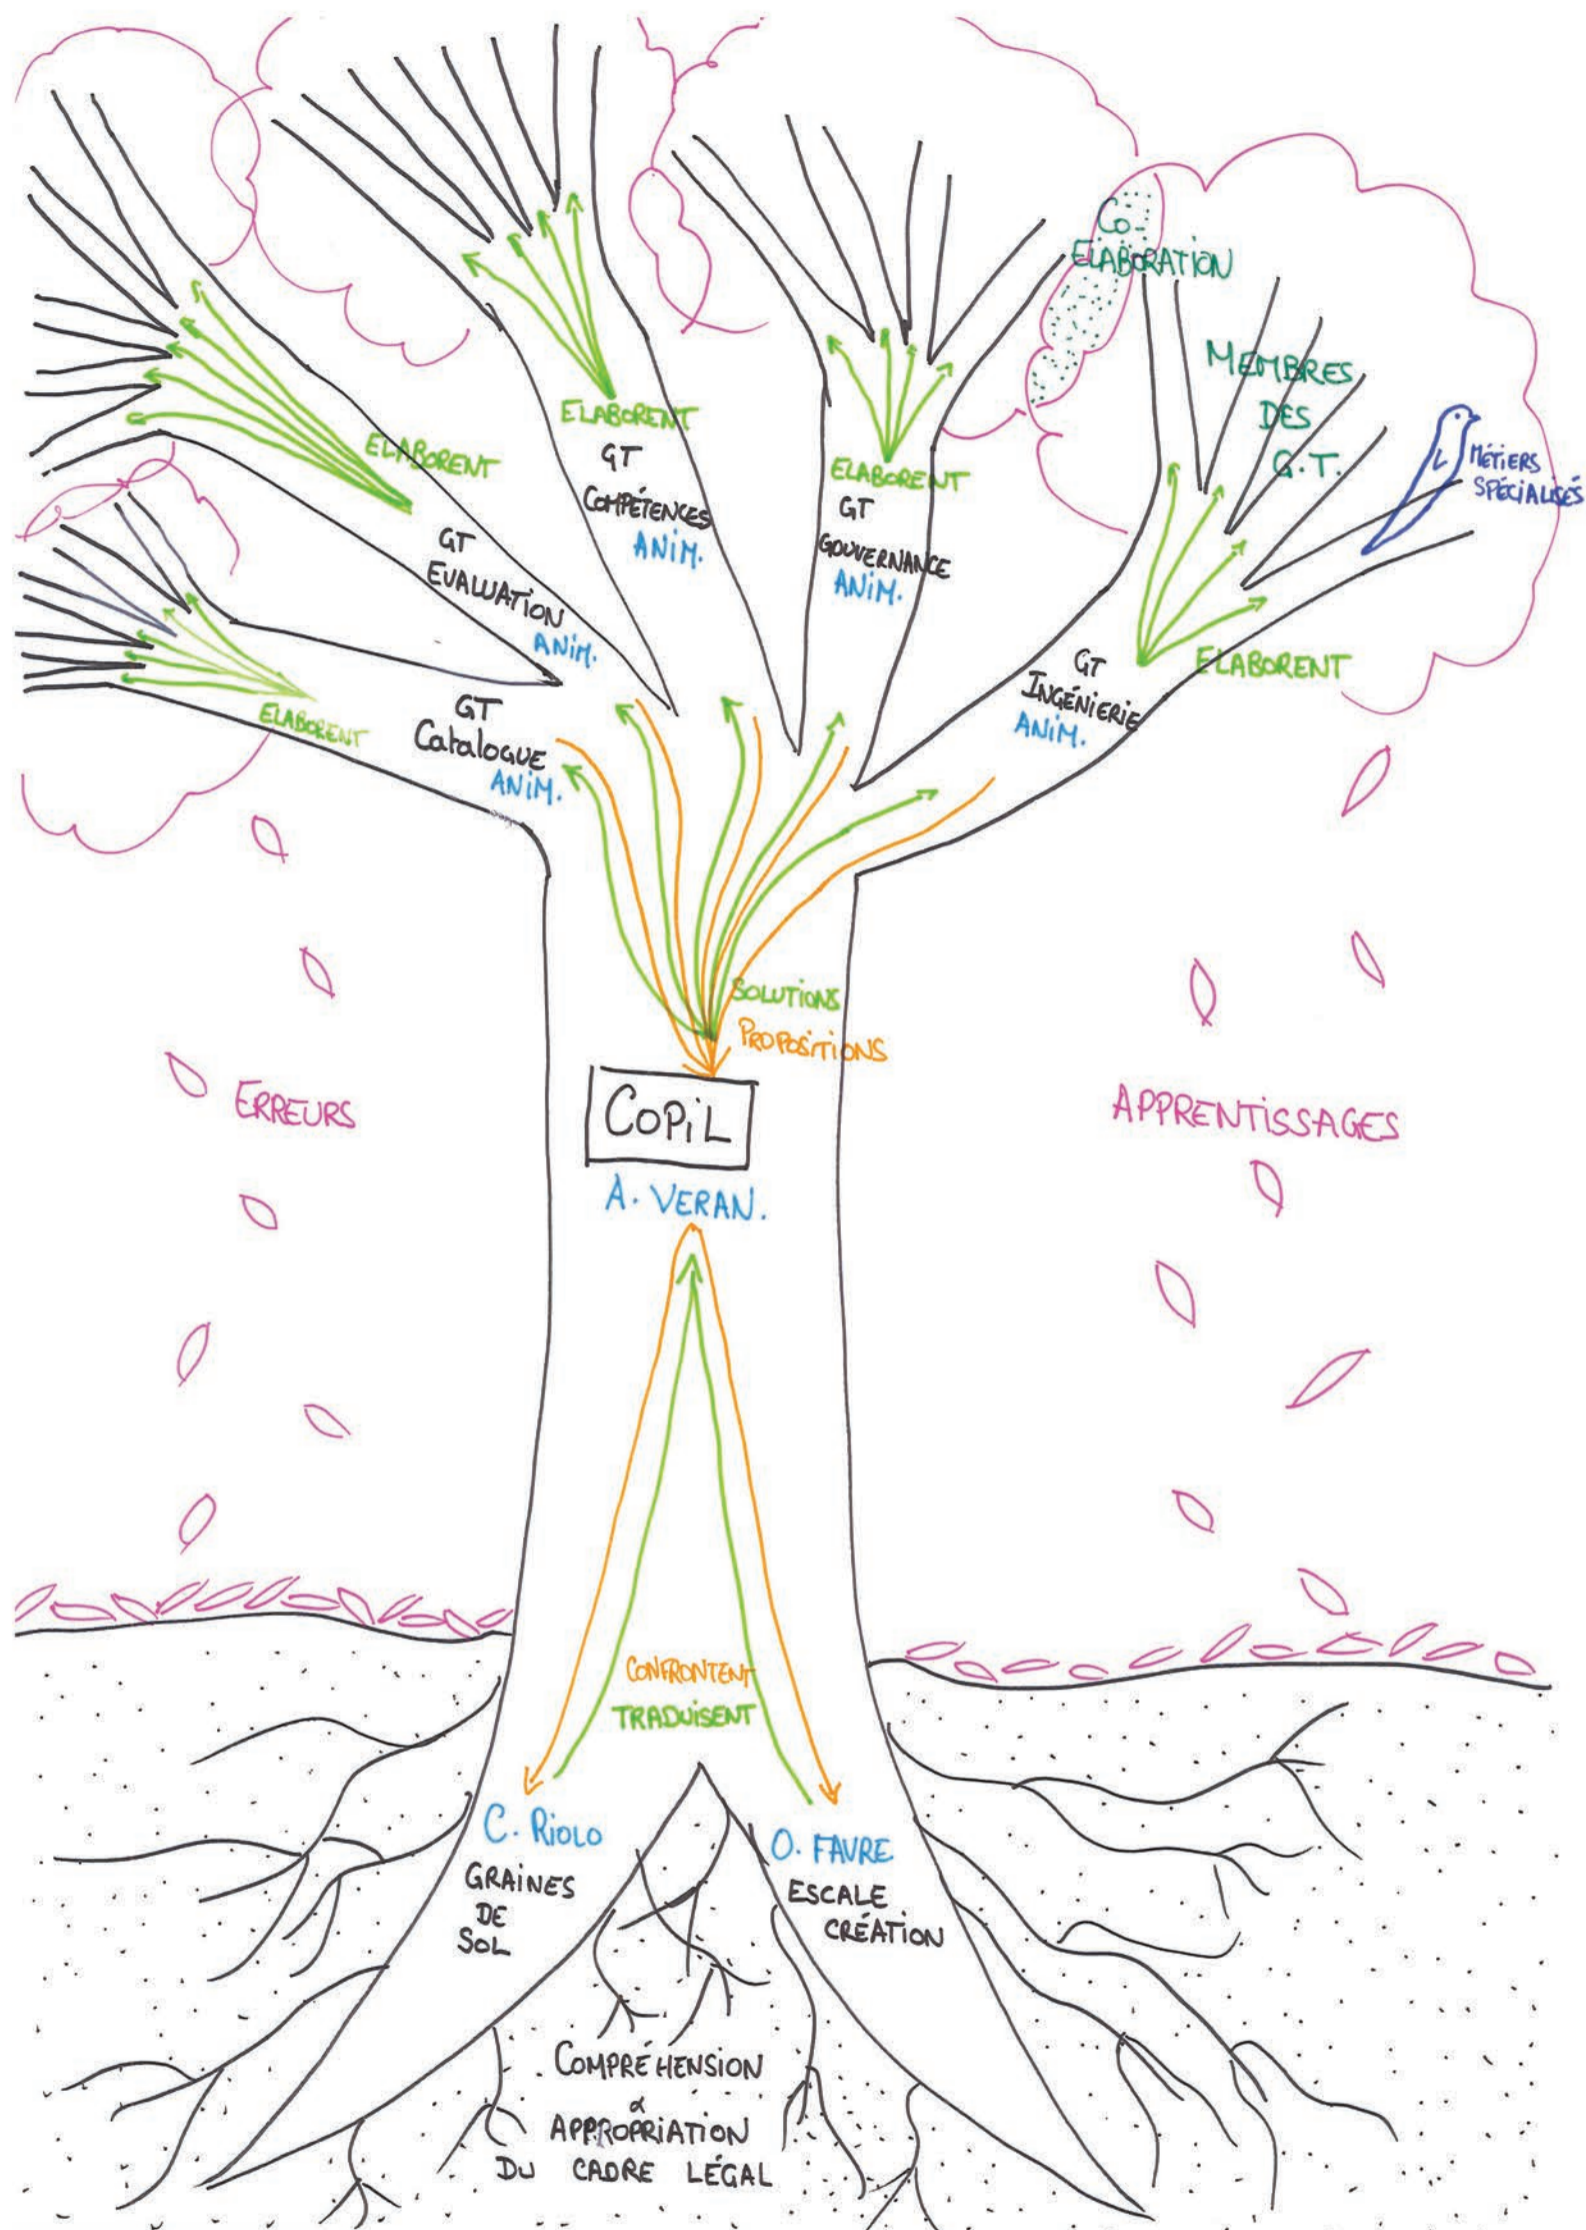 CO-
ELABORATION
MEMBRES
DES
G.T.
MÉTIERS
SPÉCIALISÉS
ELABORENT
GT
COMPÉTENCES
ANIM.
ELABORENT
GT
GOUVERNANCE
ANIM.
ELABORENT
GT
EVALUATION
ANIM.
ELABORENT
GT
INGÉNIERIE
ANIM.
ELABORENT
GT
Catalogue
ANIM.
SOLUTIONS
PROPOSITIONS
COPIL
A. VERAN.
ERREURS
APPRENTISSAGES
CONFRONTENT
TRADUISENT
C. RIOLO
GRAINES
DE
SOL
O. FAVRE
ESCALE
CRÉATION
COMPRÉHENSION
&
APPROPRIATION
DU CADRE LÉGAL